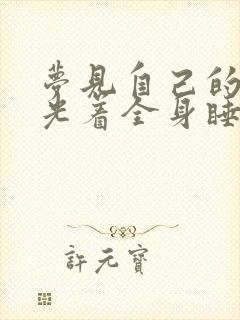 夢見自己的
光着全身睡
許元寶